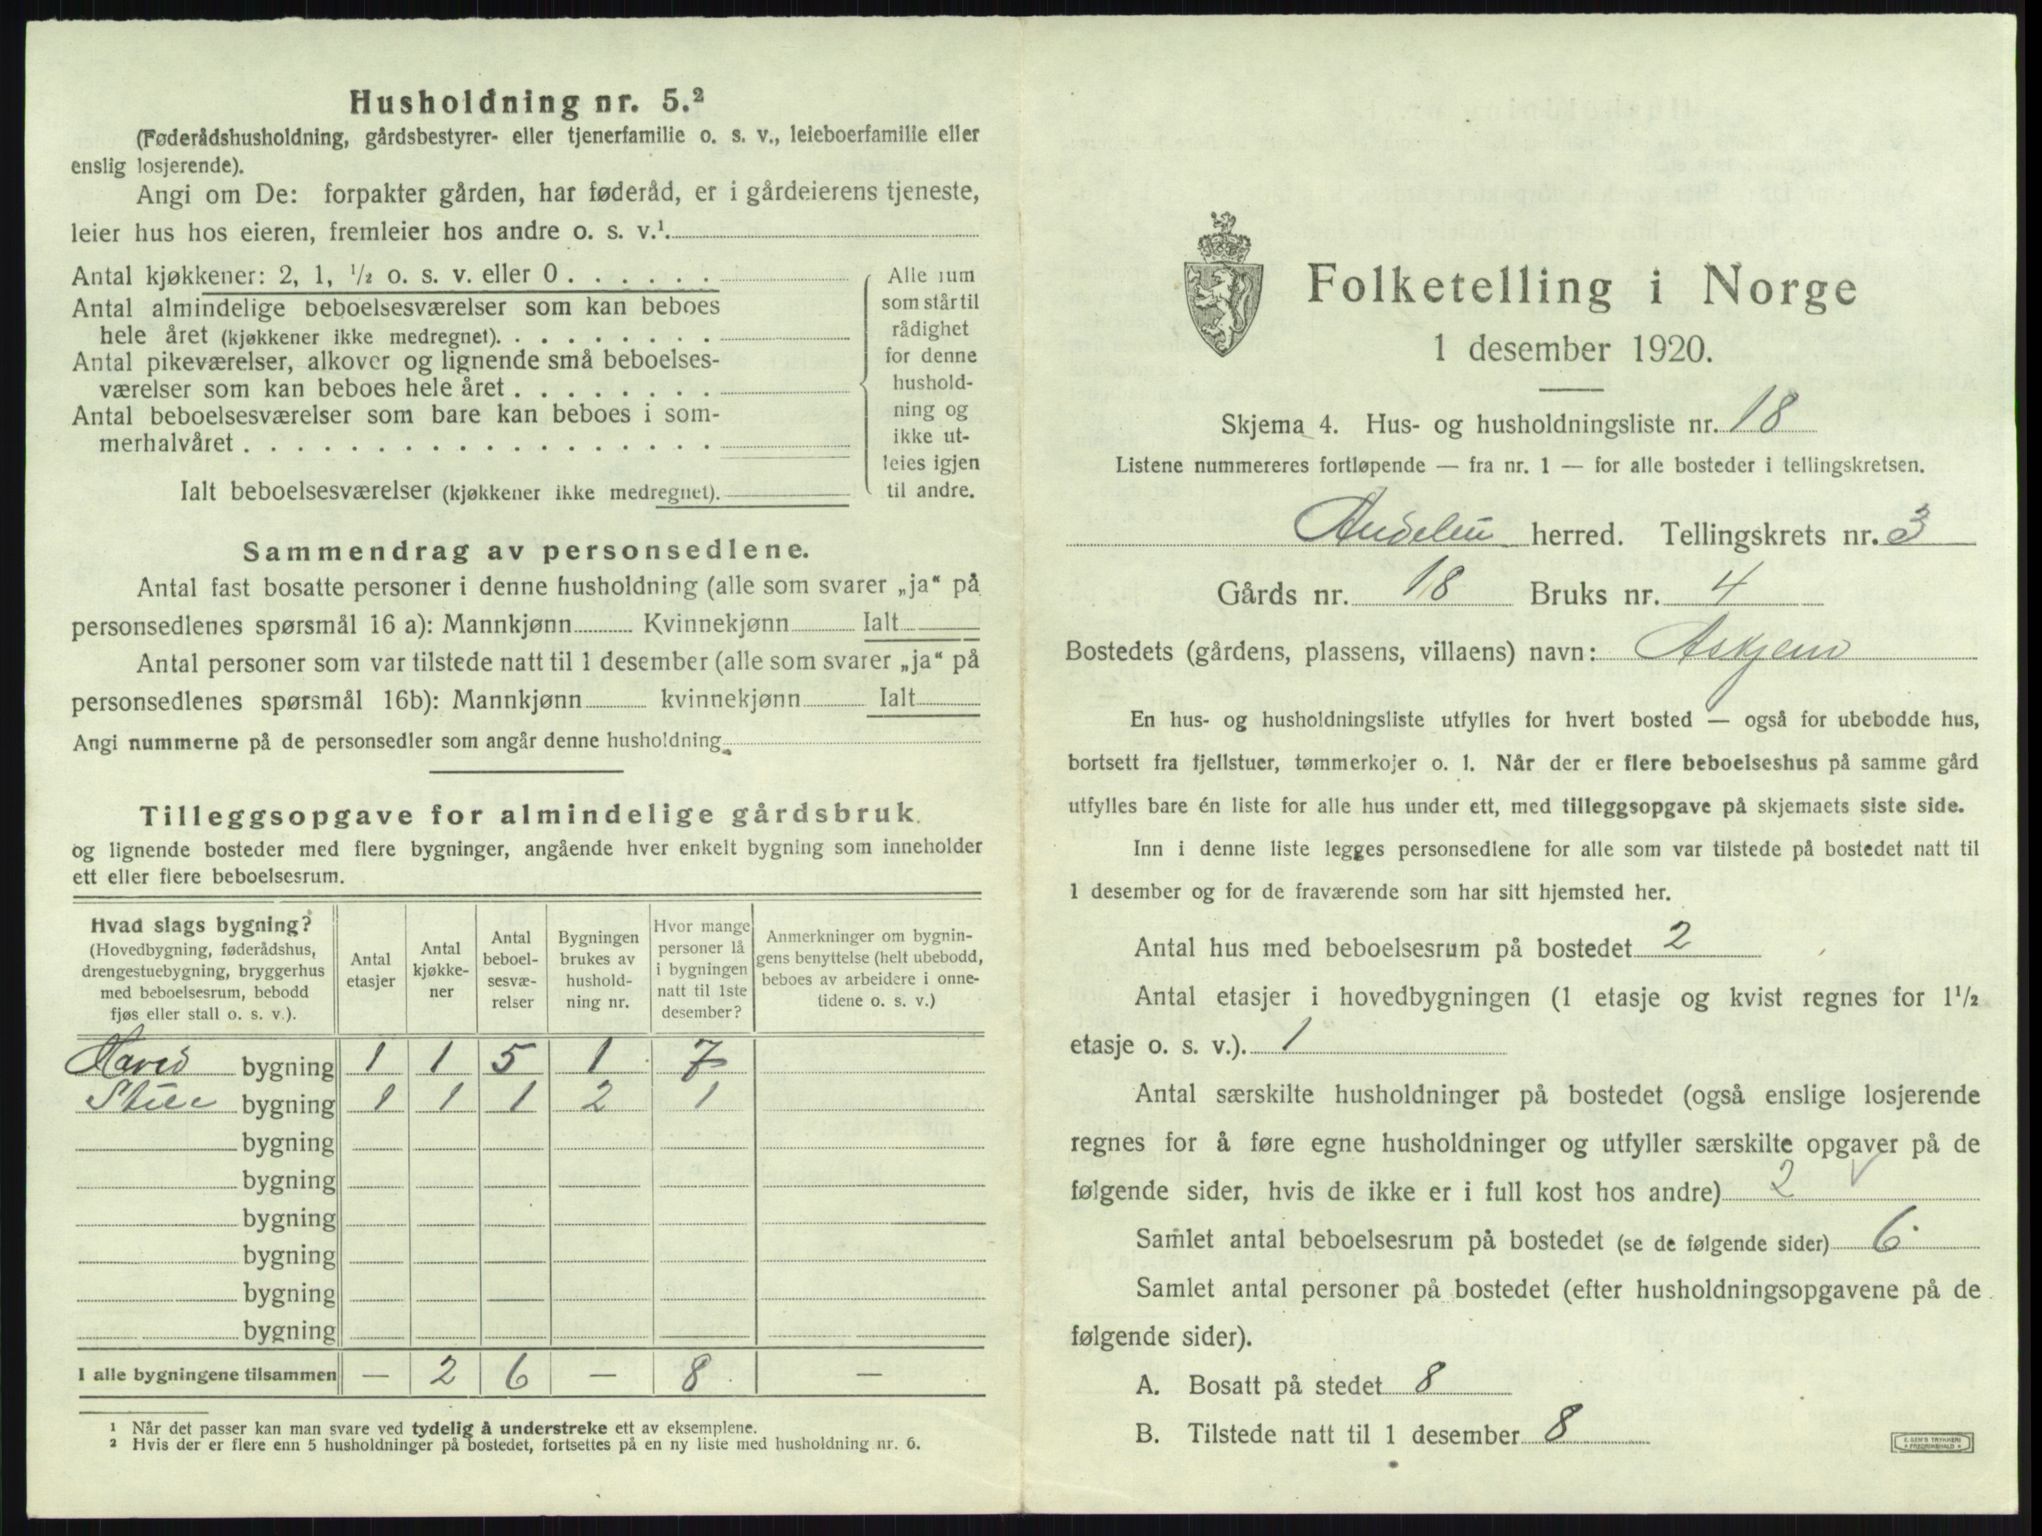 Husholdning nr. 5.²
(Føderådshusholdning, gårdsbestyrer- eller tjenerfamilie o. s. v., leieboerfamilie eller
enslig losjerende).
Angi om De: forpakter gården, har føderåd, er i gårdeierens tjeneste,
leier hus hos eieren, fremleier hos andre o. s. v.¹
Antal kjøkkener: 2, 1, ½ o. s. v. eller 0
Antal almindelige beboelsesværelser som kan beboes
hele året (kjøkkener ikke medregnet).
Antal pikeværelser, alkover og lignende små beboelses-
værelser som kan beboes hele året
Antal beboelsesværelser som bare kan beboes i som-
merhalvåret
Ialt beboelsesværelser (kjøkkener ikke medregnet).
Alle rum
som står til
rådighet
for denne
hushold-
ning og
ikke ut-
leies igjen
til andre.
Sammendrag av personsedlene.
Antal fast bosatte personer i denne husholdning (alle som svarer „ja“ på
personsedlenes spørsmål 16 a): Mannkjønn Kvinnekjønn Ialt
Antal personer som var tilstede natt til 1 desember (alle som svarer „ja“ på
personsedlenes spørsmål 16b): Mannkjønn kvinnekjønn Ialt
Angi nummerne på de personsedler som angår denne husholdning
Tilleggsopgave for almindelige gårdsbruk
og lignende bosteder med flere bygninger, angående hver enkelt bygning som inneholder
ett eller flere beboelsesrum.
Hvad slags bygning?
(Hovedbygning, føderådshus,
drengestuebygning, bryggerhus
med beboelsesrum, bebodd
fjøs eller stall o. s. v.).
Antal
etasjer
Antal
kjøkke-
ner
Antal
beboel-
sesvæ-
relser
Bygningen
brukes av
hushold-
ning nr.
Hvor mange
personer lå
i bygningen
natt til 1ste
desember?
Anmerkninger om bygnin-
gens benyttelse (helt ubebodd,
beboes av arbeidere i onne-
tidene o. s. v.)
bygning 1 1 5 1 7
bygning 1 1 1 2 1
bygning
bygning
bygning
bygning
bygning
bygning
I alle bygningene tilsammen — 2 6 — 8 —
¹ Når det passer kan man svare ved tydelig å understreke ett av eksemplene.
² Hvis der er flere enn 5 husholdninger på bostedet, fortsettes på en ny liste med husholdning nr. 6.
Folketelling i Norge
1 desember 1920.
Skjema 4. Hus- og husholdningsliste nr. 18
Listene nummereres fortløpende — fra nr. 1 — for alle bosteder i tellingskretsen.
herred. Tellingskrets nr. 3
Gårds nr. 18 Bruks nr. 4
Bostedets (gårdens, plassens, villaens) navn: Askjem
En hus- og husholdningsliste utfylles for hvert bosted — også for ubebodde hus,
bortsett fra fjellstuer, tømmerkojer o. l. Når der er flere beboelseshus på samme gård
utfylles bare én liste for alle hus under ett, med tilleggsopgave på skjemaets siste side.
Inn i denne liste legges personsedlene for alle som var tilstede på bostedet natt til
1 desember og for de fraværende som har sitt hjemsted her.
Antal hus med beboelsesrum på bostedet 2
Antal etasjer i hovedbygningen (1 etasje og kvist regnes for 1½
etasje o. s. v.). 1
Antal særskilte husholdninger på bostedet (også enslige losjerende
regnes for å føre egne husholdninger og utfyller særskilte opgaver på de
følgende sider, hvis de ikke er i full kost hos andre) 2
Samlet antal beboelsesrum på bostedet (se de følgende sider) 6
Samlet antal personer på bostedet (efter husholdningsopgavene på de
følgende sider).
A. Bosatt på stedet 8
B. Tilstede natt til 1 desember 8
E. SEM'S TRYKKERI
FREDRIKSHALD